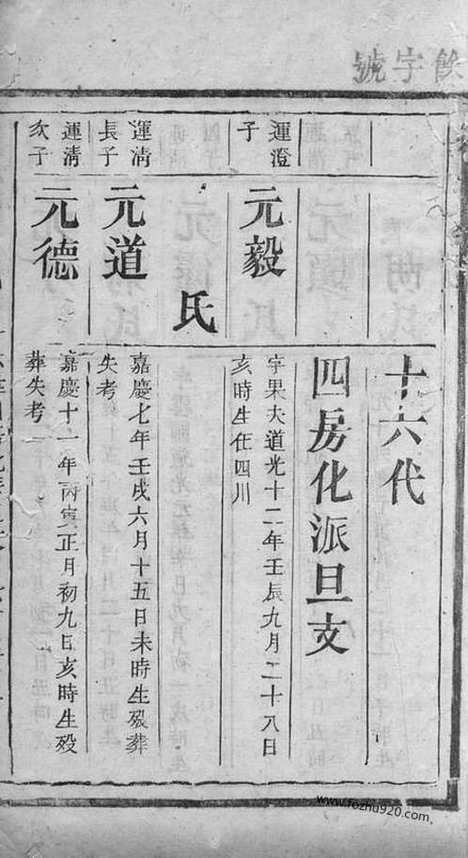 餘字號
十六代
四房化派旦支
運澄
子
元毅
字果夫道光十二年壬辰九月二十八日
亥時生在四川
氏
運清
長子
元道
嘉慶七年壬戌六月十五日未時生殁葬
失考
運清
次子
元德
嘉慶十一年丙寅正月初九日亥時生殁
葬失考
www.fozhu920.com